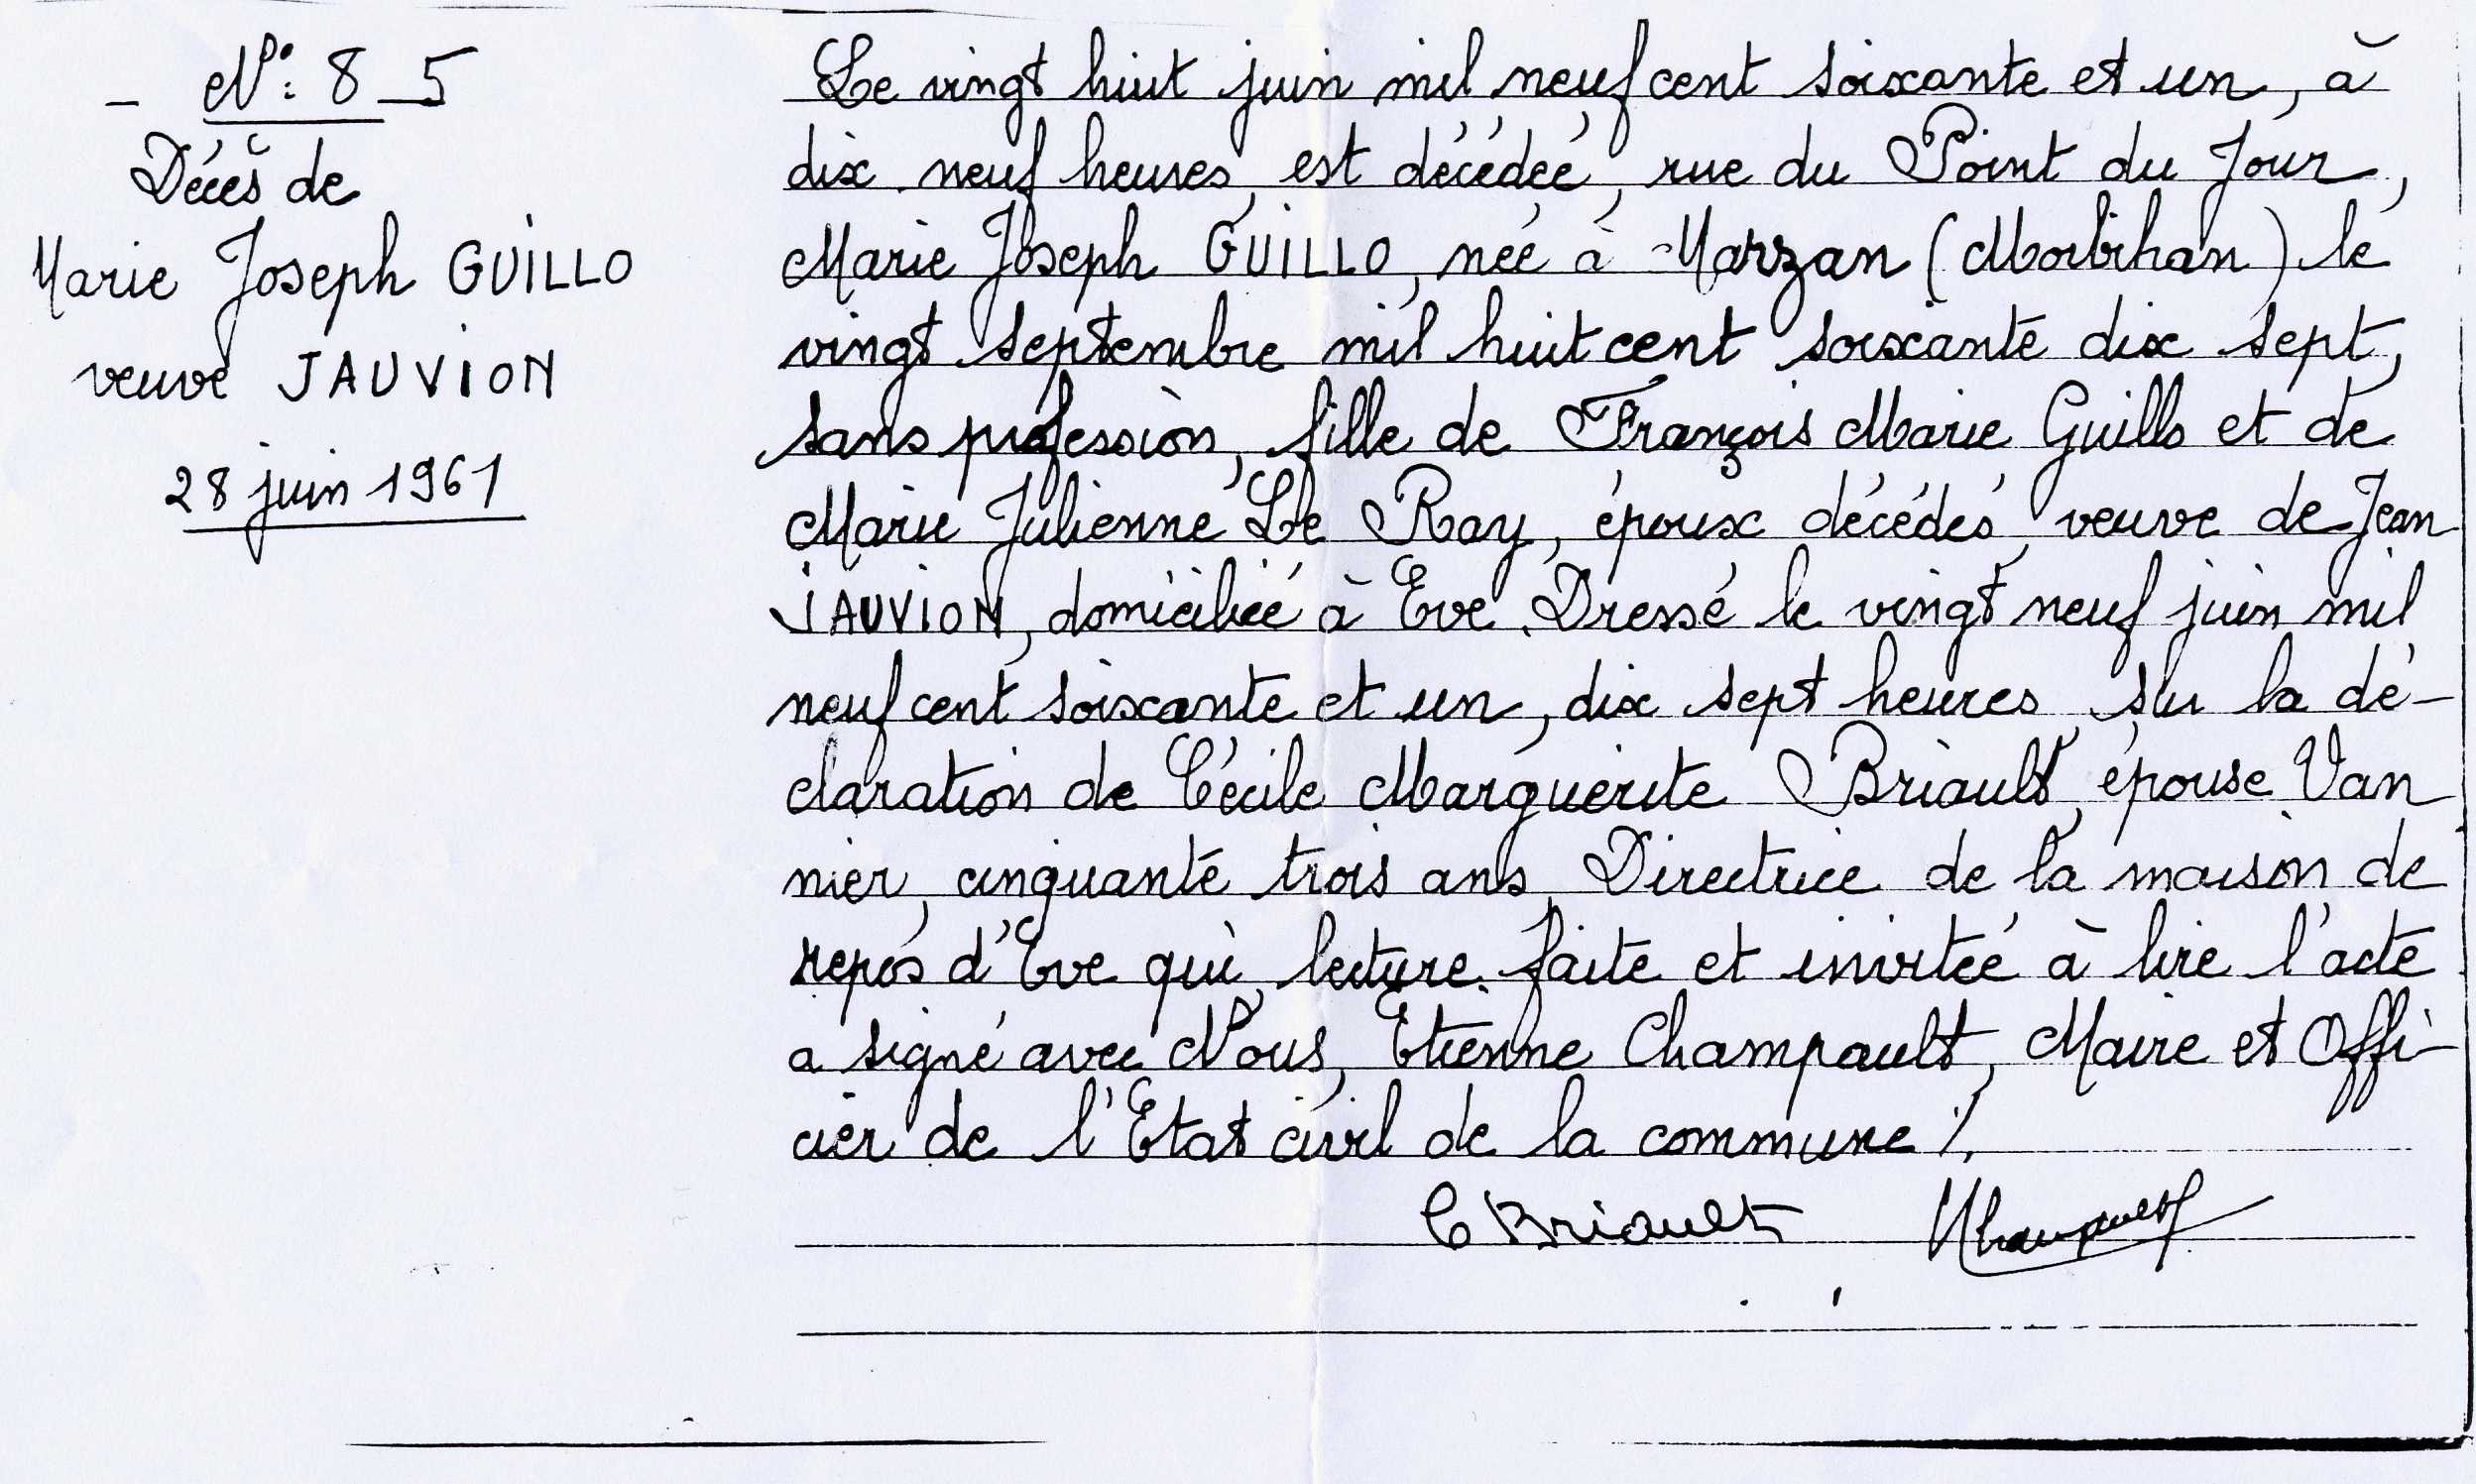 - N°: 8_5
Décès de
Marie Joseph GUILLO
veuve JAUVION
28 juin 1961
Le vingt huit juin mil neuf cent soixante et un, à
dix neuf heures, est décédée, rue du Point du Jour,
Marie Joseph GUILLO, née à Marzan (Morbihan) le
vingt septembre mil huit cent soixante dix sept,
sans profession, fille de François Marie Guillo et de
Marie Julienne Le Ray, époux décédés, veuve de Jean
JAUVION, domiciliée à Eve. Dressé le vingt neuf juin mil
neuf cent soixante et un, dix sept heures, sur la dé-
claration de Cécile Marguerite Briault, épouse Van
nier, cinquante trois ans, Directrice de la maison de
repos d'Eve qui, lecture faite et invitée à lire l'acte
a signé avec Nous, Etienne Champault, Maire et Offi-
cier de l'Etat civil de la commune ./.
C Briault
Champault